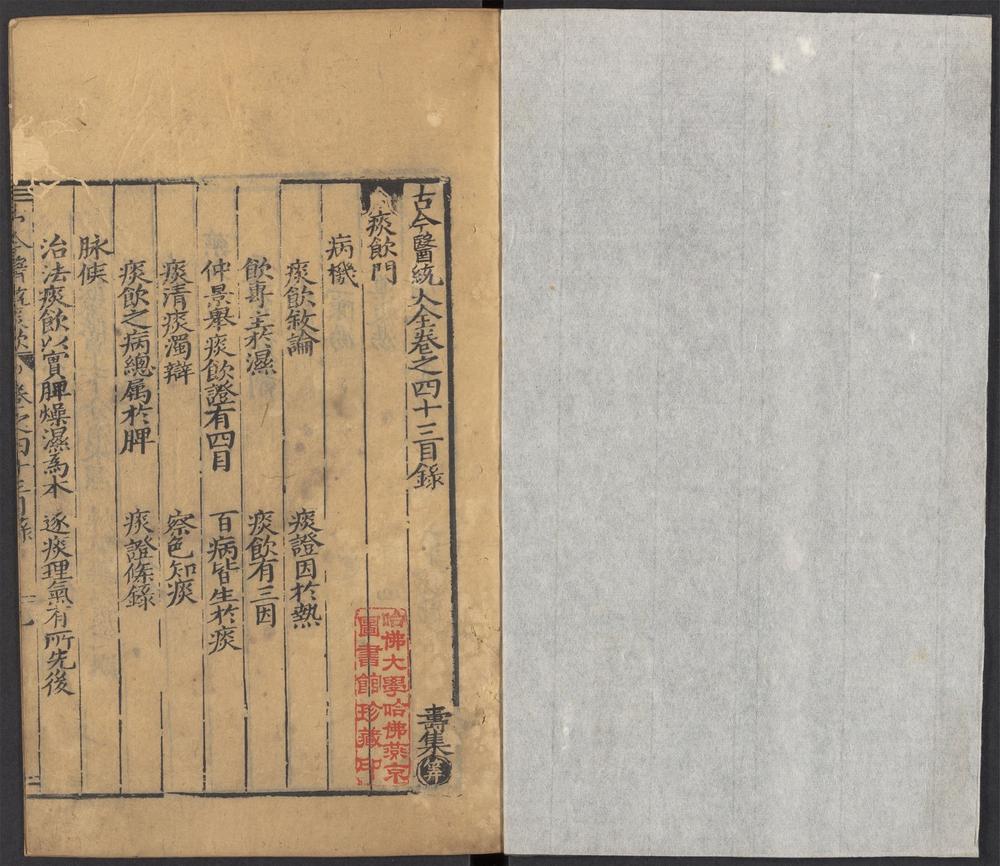 古今醫統大全卷之四十三目錄 壽集
痰飲門
病機
痰飲敘論 痰證因於熱
飲專主於濕 痰飲有三因
仲景舉痰飲證有四目 百病皆生於痰
痰清痰濁辯 察色知痰
痰飲之病總属於脾 痰證條錄
脉候
治法痰飲以實脾燥濕爲本 逐痰理氣有所先後
哈佛大學哈佛燕京
圖書館珍藏印